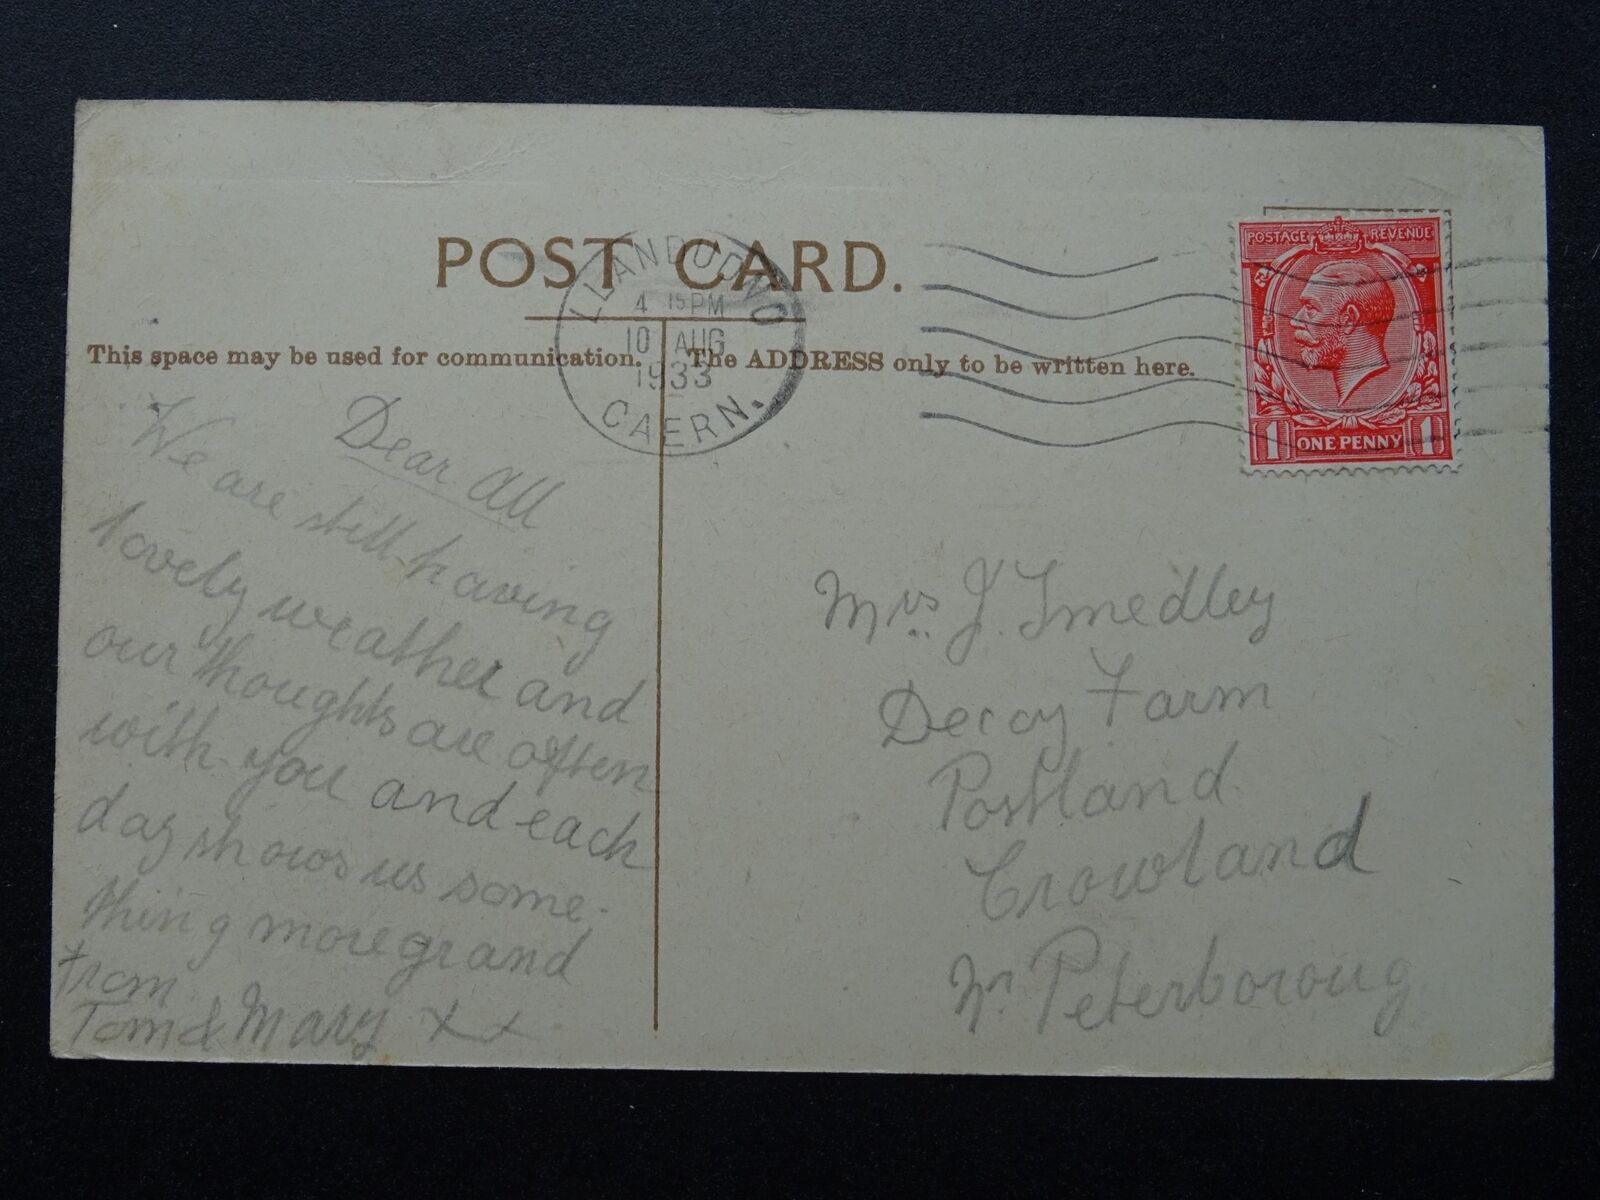 POST CARD.
LLANDUDNO
4 15 PM
10 AUG
1933
CAERN.
POSTAGE REVENUE
1 ONE PENNY 1
This space may be used for communication.
The ADDRESS only to be written here.
Dear All
We are still having
lovely weather and
our thoughts are often
with you and each
day shows us some-
thing more grand
from
Tom & Mary x x
Mrs. J. Smedley
Decoy Farm
Postland
Crowland
Nr Peterboroug